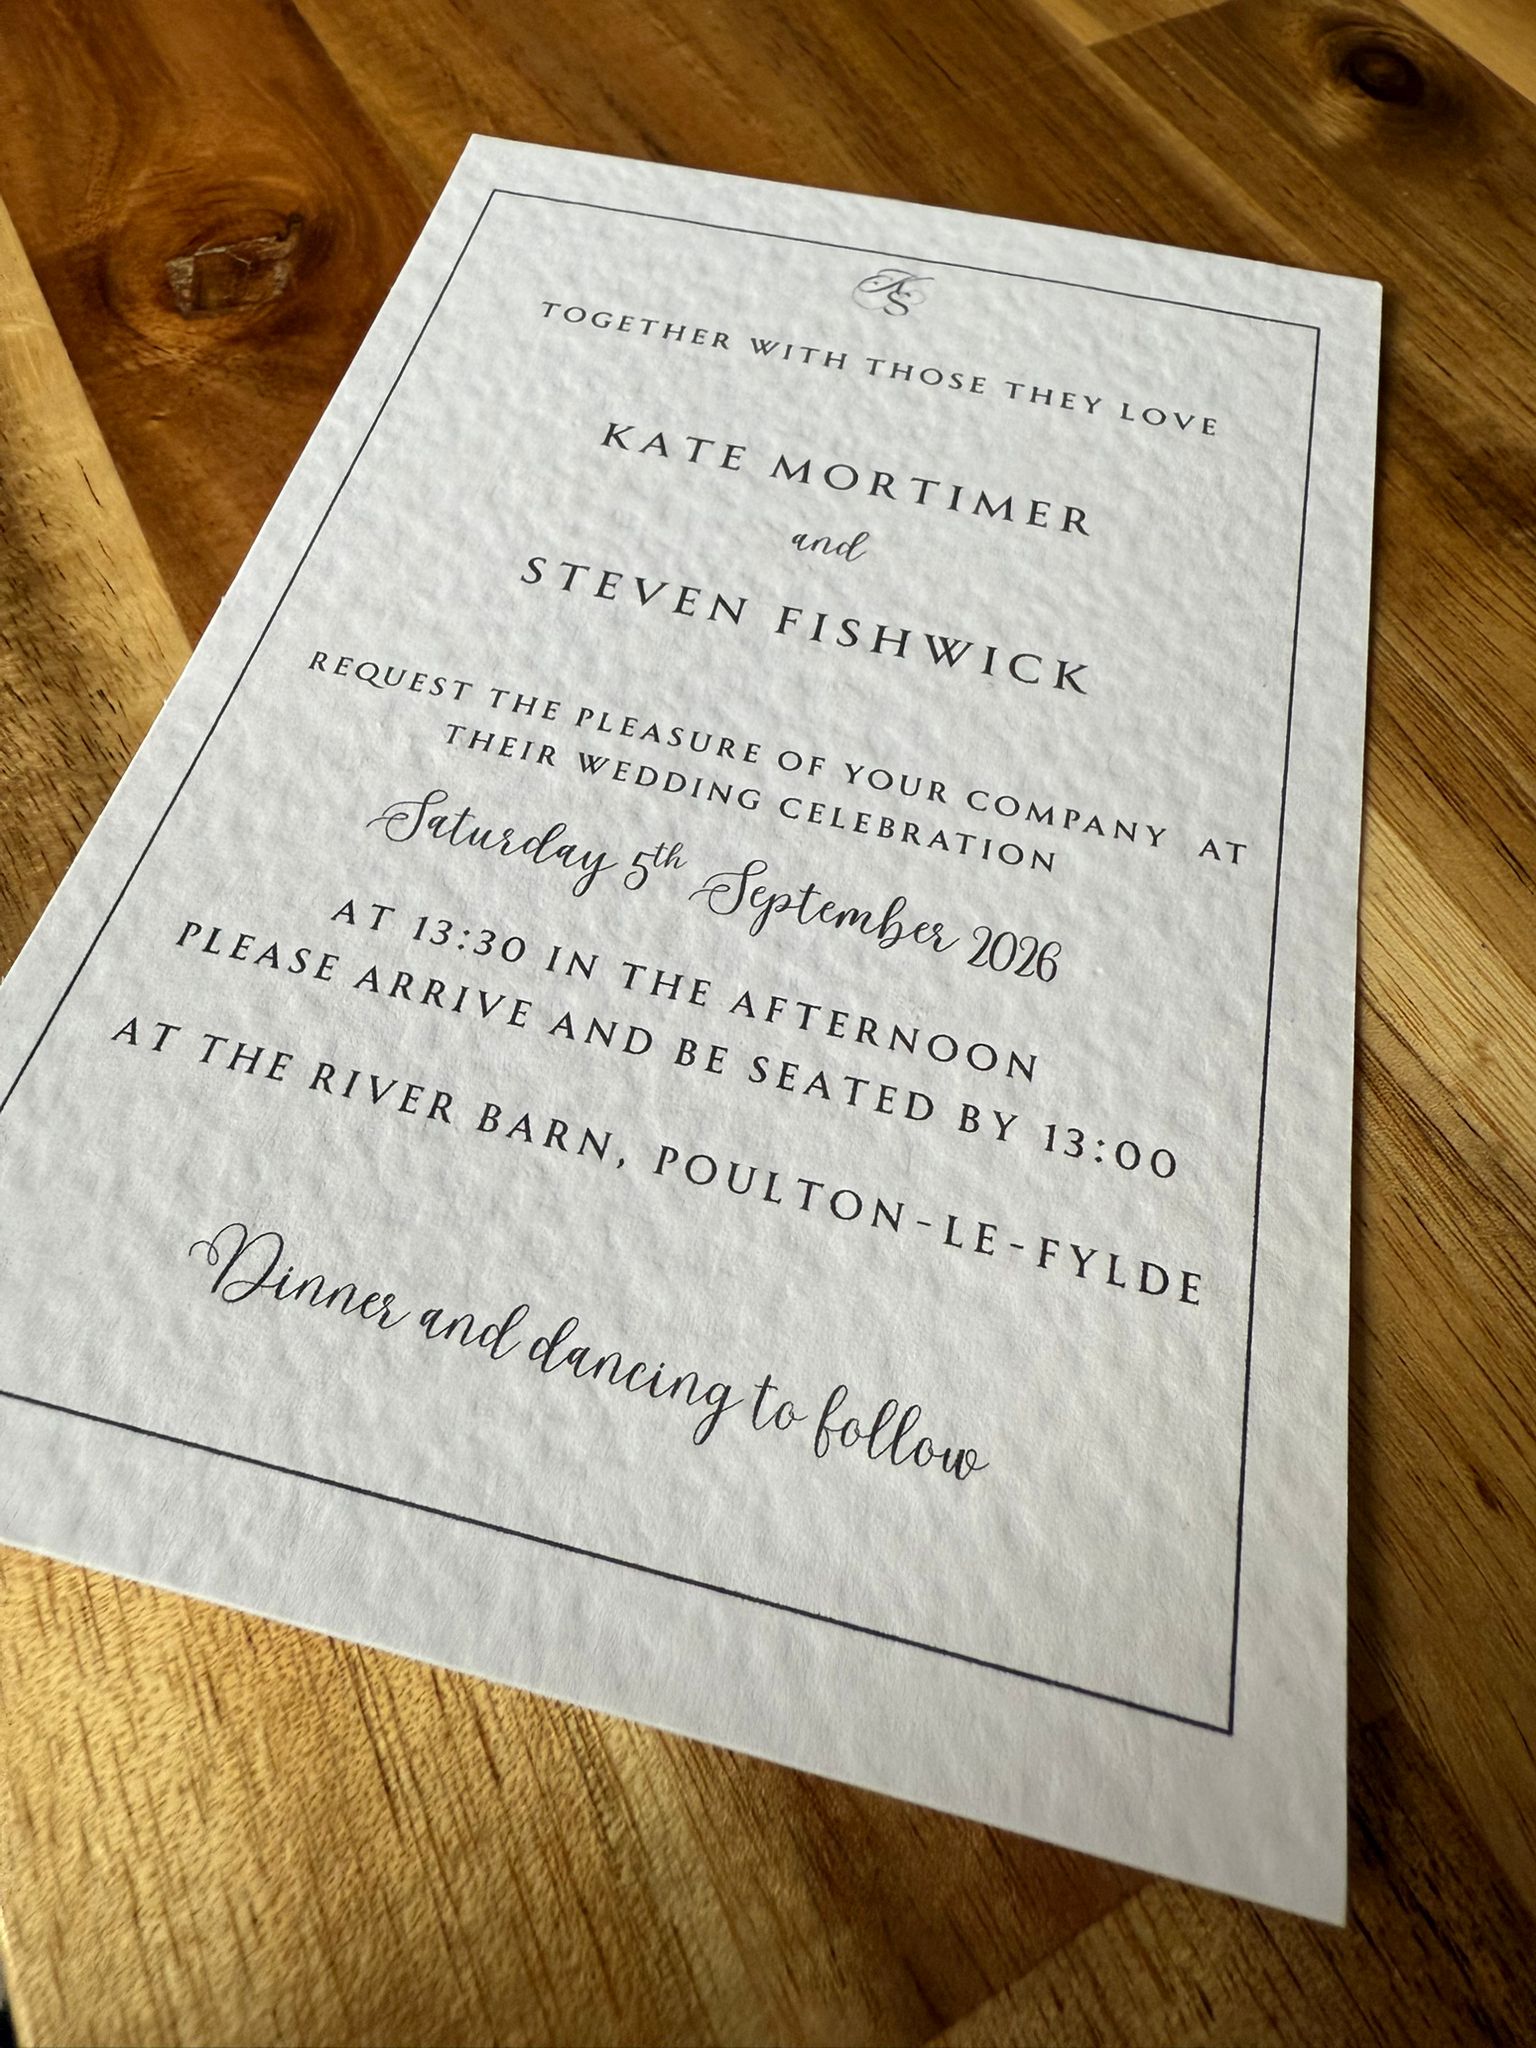 KS
TOGETHER WITH THOSE THEY LOVE
KATE MORTIMER
and
STEVEN FISHWICK
REQUEST THE PLEASURE OF YOUR COMPANY AT
THEIR WEDDING CELEBRATION
Saturday 5th September 2026
AT 13:30 IN THE AFTERNOON
PLEASE ARRIVE AND BE SEATED BY 13:00
AT THE RIVER BARN, POULTON-LE-FYLDE
Dinner and dancing to follow